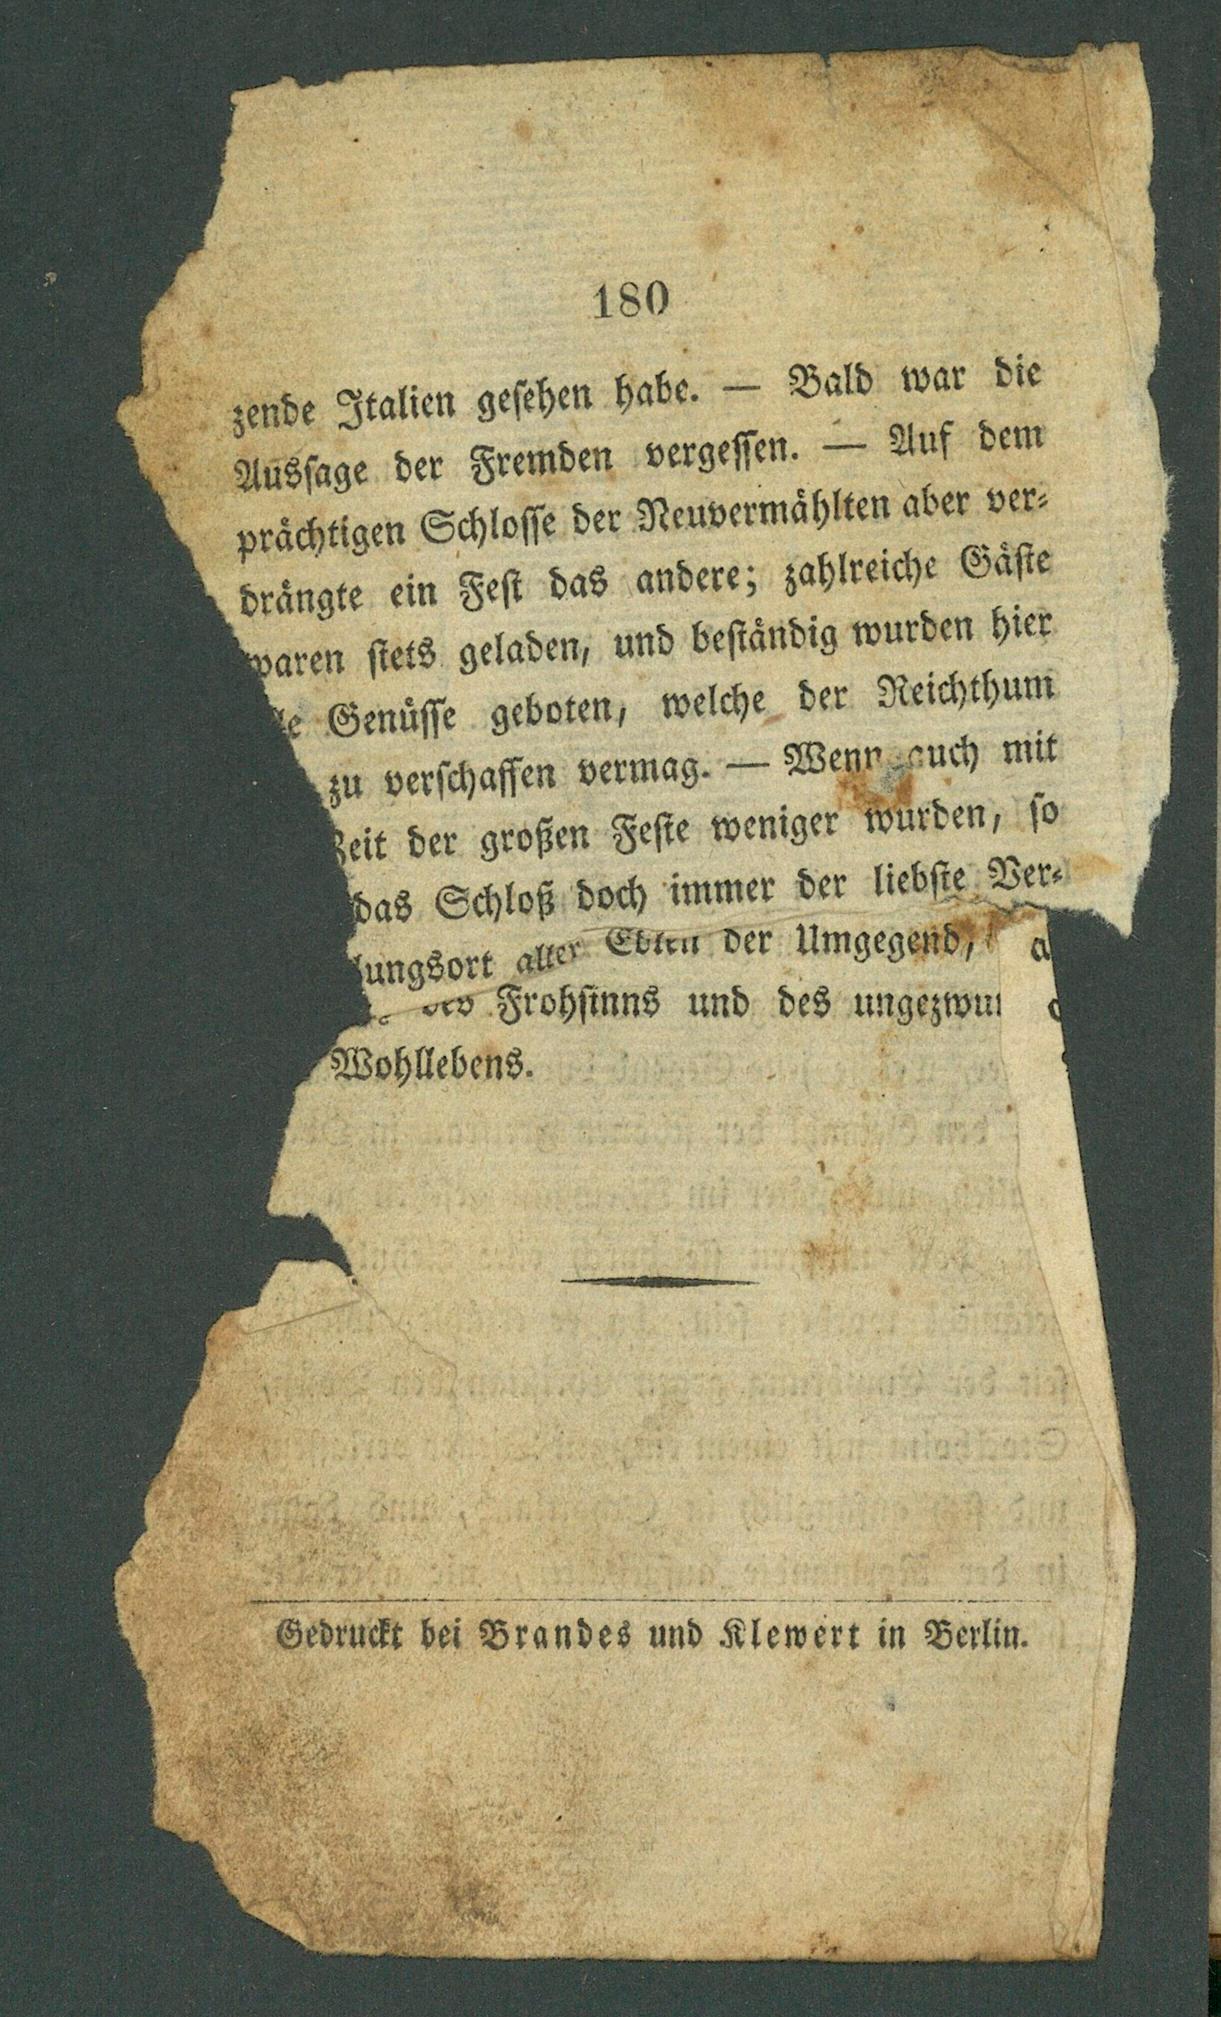 180
zende Italien geſehen habe. — Bald war die
Ausſage der Fremden vergeſſen. — Auf dem
prächtigen Schloſſe der Neuvermählten aber ver-
drängte ein Feſt das andere; zahlreiche Gäſte
waren ſtets geladen, und beſtändig wurden hier
Genüſſe geboten, welche der Reichthum
zu verſchaffen vermag. — Wenn auch mit
Zeit der großen Feſte weniger wurden, ſo
das Schloß doch immer der liebſte Ver-
lungsort aller Edlen der Umgegend,
des Frohſinns und des
Wohllebens.
Gedruckt bei Brandes und Klewert in Berlin.